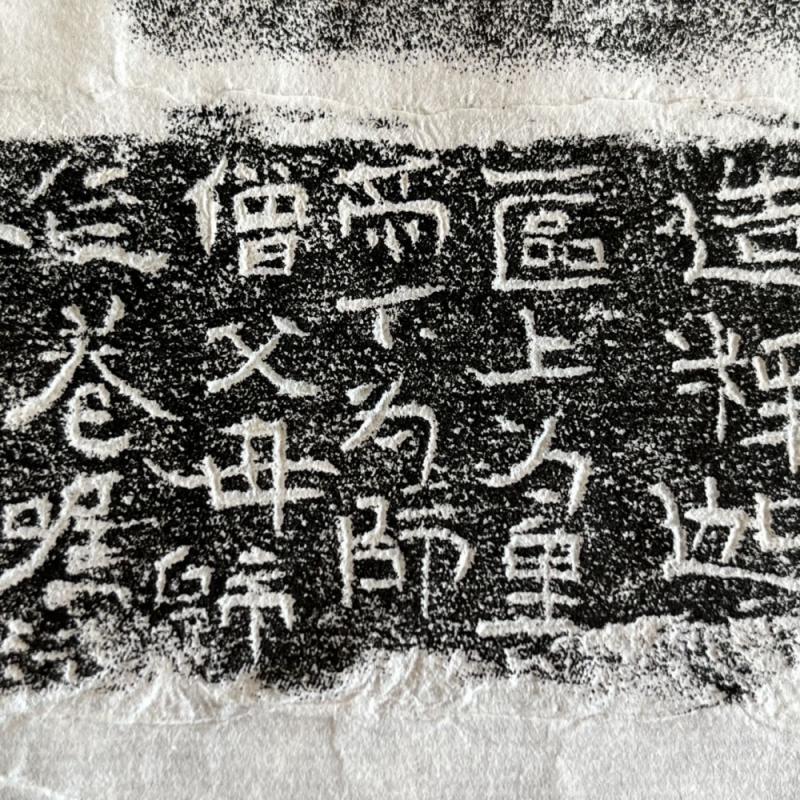 造釋迦
區上為皇
帝下為師
僧父母歸
卷